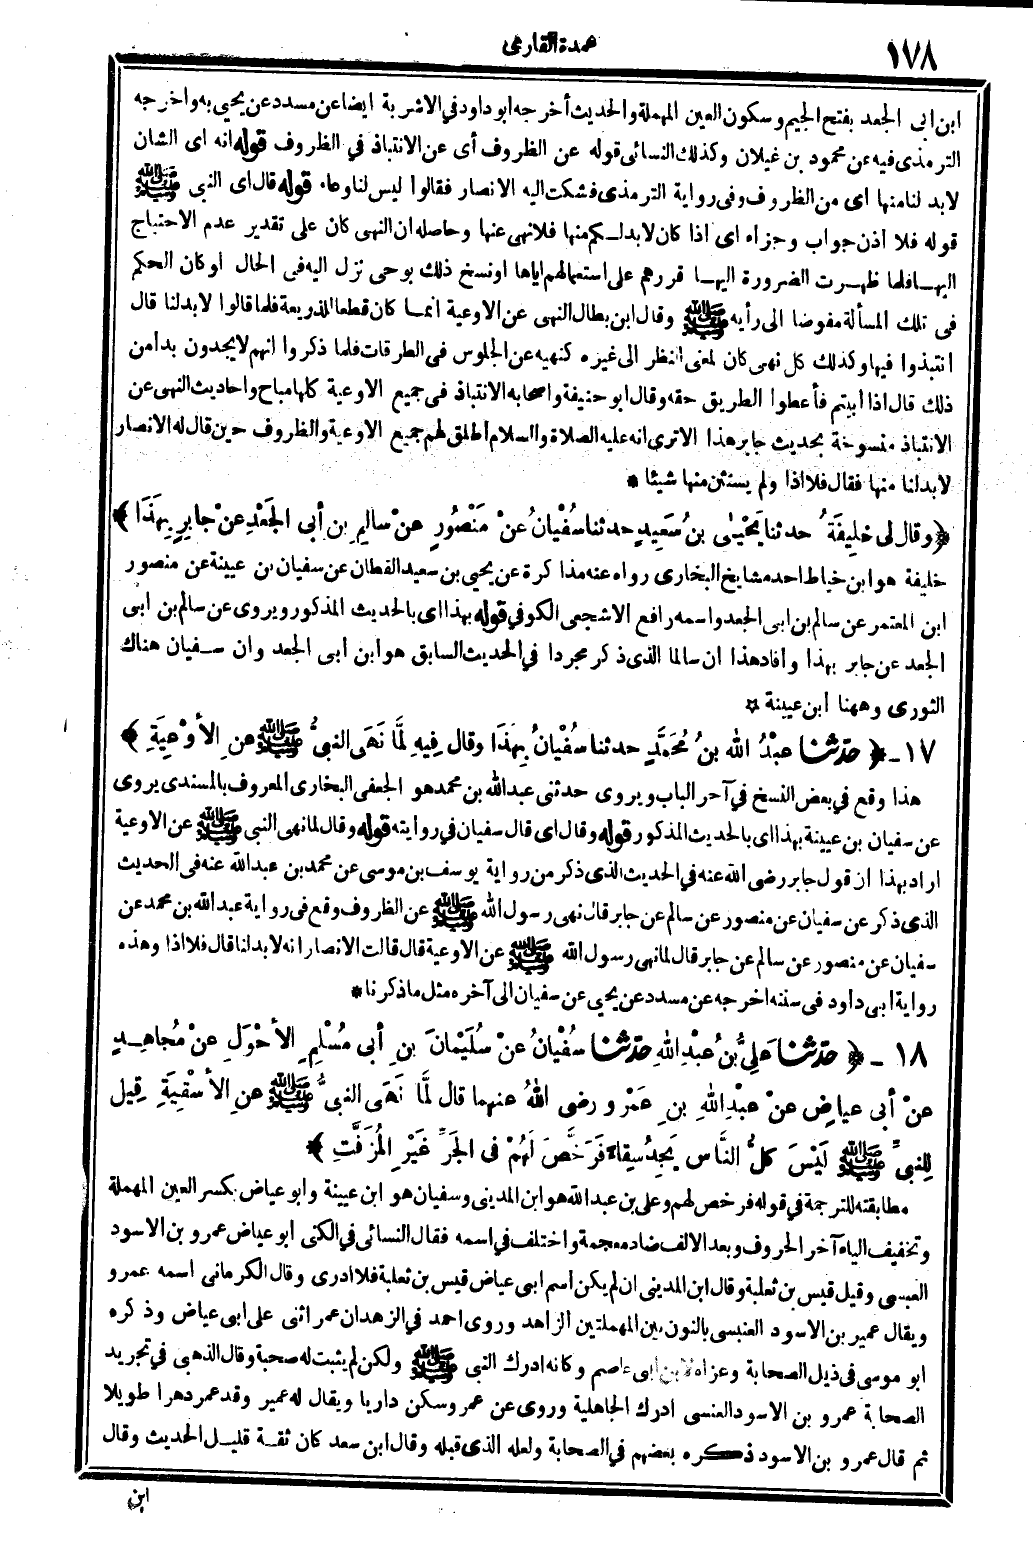 ١٧٨
عمدة القارى
ابن ابى الجعد بفتح الجيم وسكون العين المهملة والحديث أخرجه ابو داود في الاشربة ايضا عن مسدد عن يحيى به واخرجه
الترمذى فيه عن محمود بن غيلان وكذلك النسائى قوله عن الظروف أى عن الانتباذ في الظروف قوله انه اى الشان
لابد لنا منها اى من الظروف وفى رواية الترمذى فشكت اليه الانصار فقالوا ليس لنا وعاء قوله قال اى النبي ﷺ
قوله فلا اذن جواب وجزاء اى اذا كان لابد لكم منها فلا نهى عنها وحاصله ان النهى كان على تقدير عدم الاحتياج
اليها فلما ظهرت الضرورة اليها قررهم على استعمالهم اياها او نسخ ذلك بوحى نزل اليه فى الحال او كان الحكم
فى تلك المسألة مفوضا الى رأيه ﷺ وقال ابن بطال النهى عن الاوعية انما كان قطعا للذريعة فلما قالوا لابد لنا قال
انتبذوا فيها وكذلك كل نهى كان لمعنى النظر الى غيره كنهيه عن الجلوس فى الطرقات فلما ذكروا انهم لا يجدون بدا من
ذلك قال اذا أبيتم فأعطوا الطريق حقه وقال ابو حنيفة واصحابه الانتباذ فى جميع الاوعية كلها مباح واحاديث النهى عن
الانتباذ منسوخة بحديث جابر هذا الاترى انه عليه الصلاة والسلام أطلق لهم جميع الاوعية والظروف حين قال له الانصار
لابد لنا منها فقال فلا اذا ولم يستثن منها شيئا *
﴿ وقال لى خَلِيفَةُ حدثنا يَحْيَى بنُ سَعِيدٍ حدثنا سُفْيَانُ عنْ مَنْصُورٍ عنْ سالِمِ بنِ أبى الجَعْدِ عنْ جابِرٍ بِهَذَا ﴾
خليفة هو ابن خياط احد مشايخ البخارى رواه عنه مذاكرة عن يحيى بن سعيد القطان عن سفيان بن عيينة عن منصور
ابن المعتمر عن سالم بن ابى الجعد واسمه رافع الاشجعى الكوفي قوله بهذا اى بالحديث المذكور ويروى عن سالم بن ابى
الجعد عن جابر بهذا وافاد هذا ان سالما الذى ذكر مجردا في الحديث السابق هو ابن أبى الجعد وان سفيان هناك
الثورى وههنا ابن عيينة *
١٧ - ﴿ حَدَّثَنَا عبْدُ اللهِ بنُ مُحَمَّدٍ حدثنا سُفْيَانُ بِهَذَا وقال فِيهِ لَمَّا نَهَى النبىُّ ﷺ عنِ الأَوْعِيَةِ ﴾
هذا وقع في بعض النسخ في آخر الباب ويروى حدثنى عبدالله بن محمد هو الجعفى البخارى المعروف بالمسندى يروى
عن سفيان بن عيينة بهذا اى بالحديث المذكور قوله وقال اى قال سفيان في روايته قوله وقال لما نهى النبي ﷺ عن الاوعية
اراد بهذا ان قول جابر رضى الله عنه في الحديث الذى ذكر من رواية يوسف بن موسى عن محمد بن عبدالله عنه فى الحديث
الذى ذكر عن سفيان عن منصور عن سالم عن جابر قال نهى رسول الله ﷺ عن الظروف وقع فى رواية عبد الله بن محمد عن
سفيان عن منصور عن سالم عن جابر قال لما نهى رسول الله ﷺ عن الاوعية قال قالت الانصار انه لابد لنا قال فلا اذا وهذه
رواية ابى داود فى سننه اخرجه عن مسدد عن يحيى عن سفيان الى آخره مثل ما ذكرنا *
١٨ - ﴿ حَدَّثَنَا عَلِىُّ بنُ عبْدِ اللهِ حَدَّثَنَا سُفْيَانُ عنْ سُلَيْمَانَ بنِ أبى مُسْلِمٍ الأَحْوَلِ عنْ مُجاهِدٍ
عنْ أبى عياضٍ عنْ عبْدِ اللهِ بنِ عَمْرٍو رضى اللهُ عنهما قال لَمَّا نَهَى النبىُّ ﷺ عنِ الأَسْقِيَةِ قِيلَ
لِلنبىِّ ﷺ لَيْسَ كلُّ النَّاسِ يَجِدُ سِقاءً فَرَخَّصَ لَهُمْ فى الجَرِّ غَيْرِ المُزَفَّتِ ﴾
مطابقته للترجمة في قوله فرخص لهم وعلى بن عبد الله هو ابن المدينى وسفيان هو ابن عيينة وابو عياض بكسر العين المهملة
وتخفيف الياء آخر الحروف وبعد الالف ضاد معجمة واختلف في اسمه فقال النسائى في الكنى ابو عياض عمرو بن الاسود
العبسى وقيل قيس بن ثعلبة وقال ابن المدينى ان لم يكن اسم ابى عياض قيس بن ثعلبة فلا ادرى وقال الكرمانى اسمه عمرو
ويقال عمير بن الاسود العنبسى بالنون بين المهملتين الزاهد وروى احمد في الزهد ان عمر اثنى على ابى عياض وذكره
ابو موسى فى ذيل الصحابة وعزاه لابن ابى عاصم وكانه ادرك النبي ﷺ ولكن لم يثبت له صحبة وقال الذهبى في تجريد
الصحابة عمرو بن الاسود العنسى ادرك الجاهلية وروى عن عمر وسكن داريا ويقال له عمير وقد عمر دهرا طويلا
ثم قال عمرو بن الاسود ذكره بعضهم في الصحابة ولعله الذى قبله وقال ابن سعد كان ثقة قليل الحديث وقال
ابن